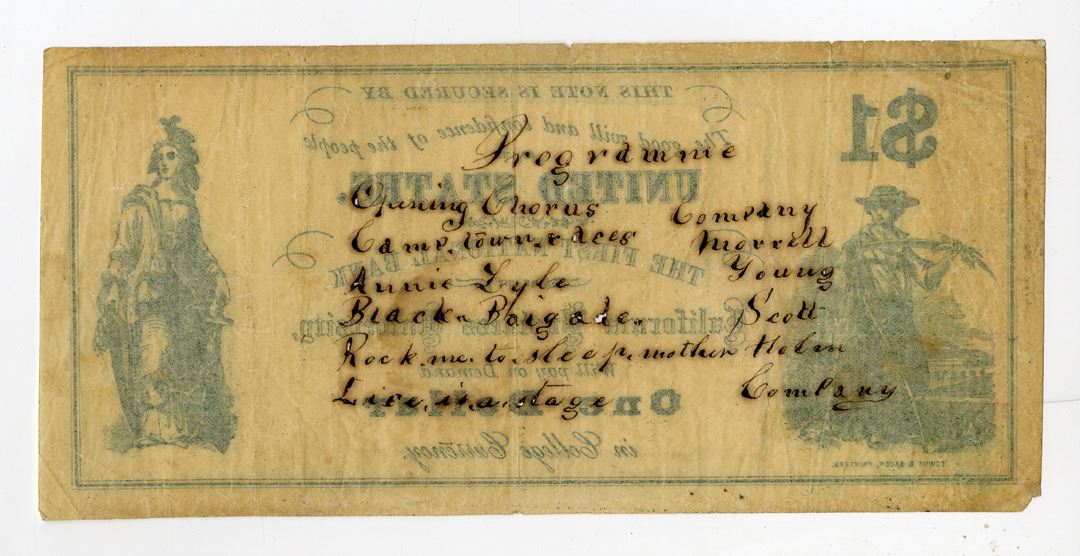 $1
THIS NOTE IS SECURED BY
The good will and confidence of the people
Programme
UNITED STATES.
Opening Chorus Company
Camp.town.races Morrell
THE FIRST NATIONAL BANK
Annie Lyle Young
Black Brigade Scott
California Business University,
Rock.me.to.sleep.mother
Will pay on Demand
Lice.in.a.stage Company
One Dollar
in College Currency.
TOWNE & BACON, PRINTERS